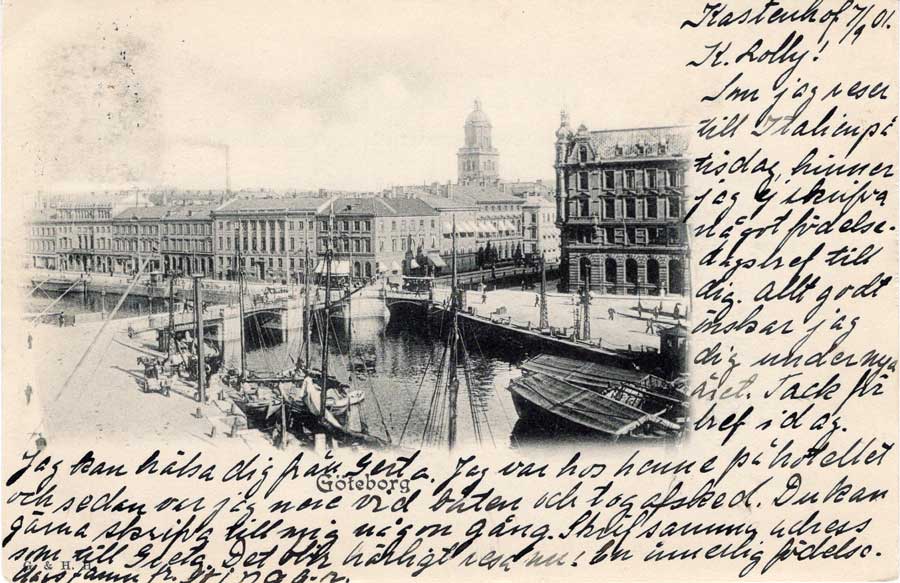 Kastenhof 7/9 01.
K. Lolly!
Som jag reser
till Italien på
tisdag, hinner
jag ej skrifva
något födelse-
dagsbref till
dig. Allt godt
önskar jag
dig under nya
året. Tack för
bref idag.
Jag kan hälsa dig från Greta. Jag var hos henne på hotellet
och sedan var jag nere vid båten och tog afsked. Du kan
gärna skrifva till mig någon gång. Skrif samma adress
som till Greta. Det blir härligt resa nu! En innerlig födelse-
Göteborg
& H. H.